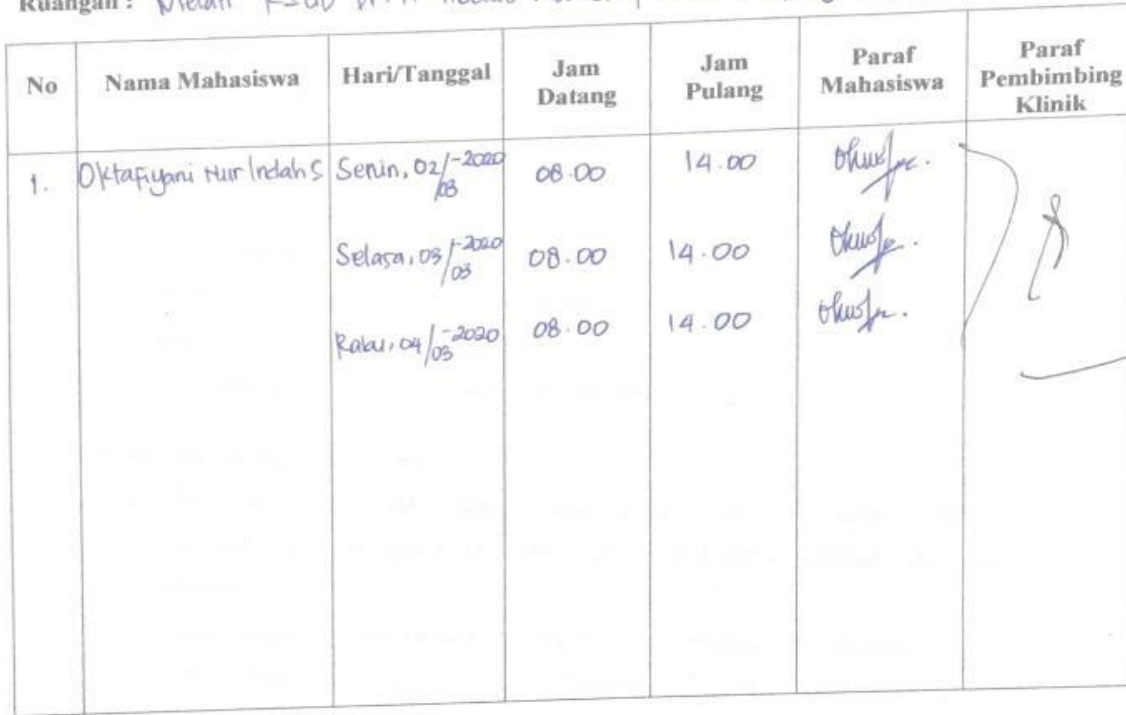 Ruangan : Melati RSUD
No Nama Mahasiswa Hari/Tanggal Jam Datang Jam Pulang Paraf Mahasiswa Paraf Pembimbing Klinik
1. Oktafiyani Nur Indah S Senin, 02/03-2020 08.00 14.00
Selasa, 03/03-2020 08.00 14.00
Rabu, 04/03-2020 08.00 14.00